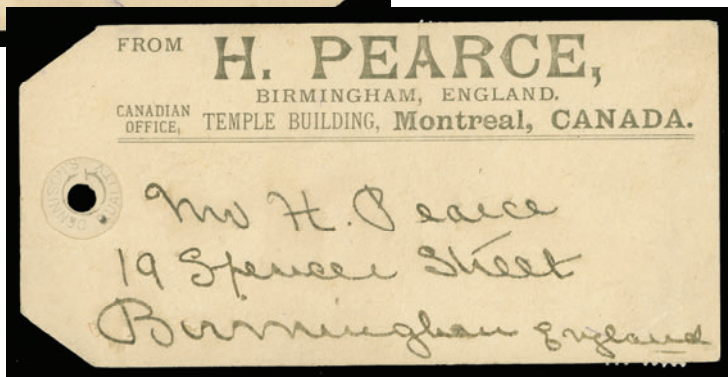 FROM H. PEARCE,
BIRMINGHAM, ENGLAND.
CANADIAN OFFICE, TEMPLE BUILDING, Montreal, CANADA.
DENNISON'S
Mr H. Pearce
19 Spencer Street
Birmingham England